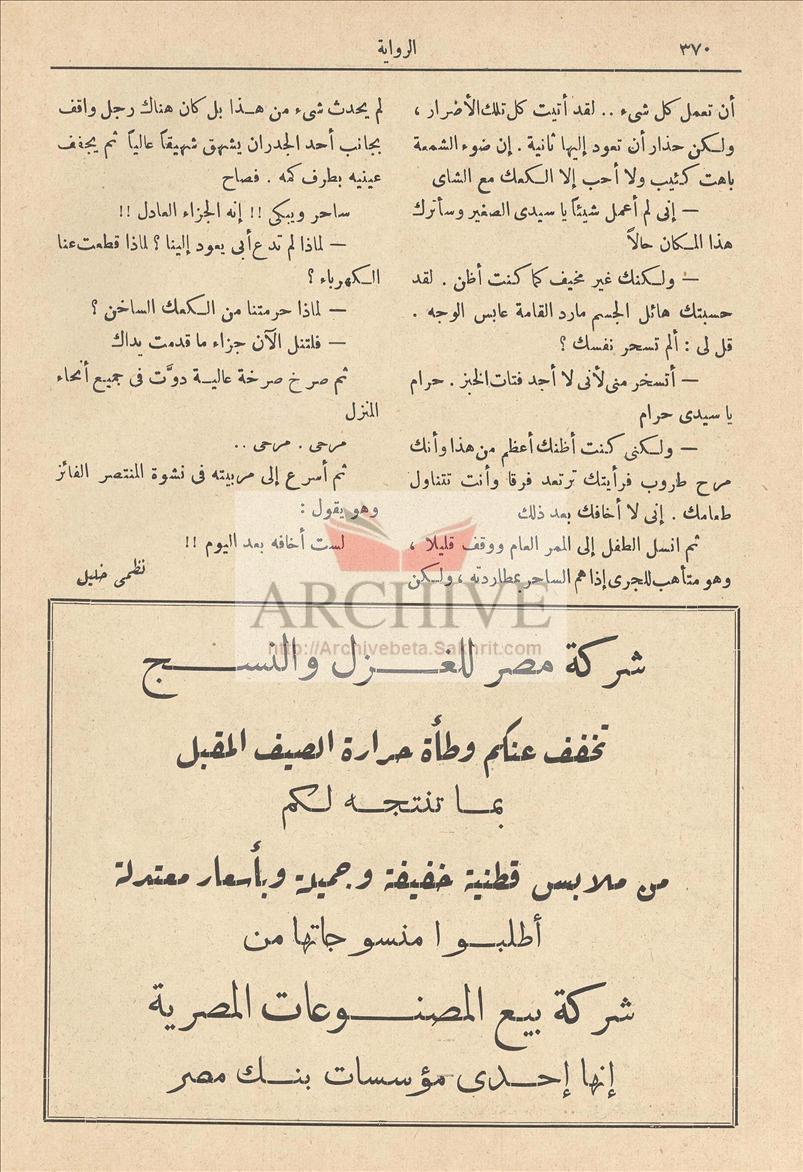 ٣٧٠
الرواية
أن تعمل كل شىء .. لقد أتيت كل تلك الأضرار ،
ولكن حذار أن تعود إليها ثانية . إن ضوء الشمعة
باهت كئيب ولا أحب إلا الكعك مع الشاى
— إنى لم أعمل شيئاً يا سيدى الصغير وسأترك
هذا المكان حالاً
— ولكنك غير مخيف كما كنت أظن . لقد
حسبتك هائل الجسم مارد القامة عابس الوجه .
قل لى : ألم تسحر نفسك ؟
— أتسخر منى لأنى لا أجد فتات الخبز . حرام
يا سيدى حرام
— ولكنى كنت أظنك أعظم من هذا وأنك
مرح طروب فرأيتك ترتعد فرقا وأنت تتناول
طعامك . إنى لا أخافك بعد ذلك
ثم انسل الطفل إلى الممر العام ووقف قليلا ،
وهو متأهب للجرى إذا هم الساحر بمطاردته ، ولكن
لم يحدث شىء من هذا بل كان هناك رجل واقف
بجانب أحد الجدران يشهق شهيقاً عالياً ثم يجفف
عينيه بطرف كمه . فصاح
ساحر ويبكى !! إنه الجزاء العادل !!
— لماذا لم تدع أبى يعود إلينا ؟ لماذا قطعت عنا
الكهرباء ؟
— لماذا حرمتنا من الكعك الساخن ؟
— فلتنل الآن جزاء ما قدمت يداك
ثم صرخ صرخة عالية دوَّت فى جميع أنحاء
المنزل
مرحى . مرحى ..
ثم أسرع إلى مربيته فى نشوة المنتصر الفائز
وهو يقول :
لست أخافه بعد اليوم !!
نظمى خليل
ARCHIVE
http://Archivebeta.Sakhrit.com
شركة مصر للغزل والنسج
تخفف عنكم وطأة حرارة الصيف المقبل
بما تنتجه لكم
من ملابس قطنية خفيفة وجميلة وبأسعار معتدلة
أطلبوا منسوجاتها من
شركة بيع المصنوعات المصرية
إنها إحدى مؤسسات بنك مصر